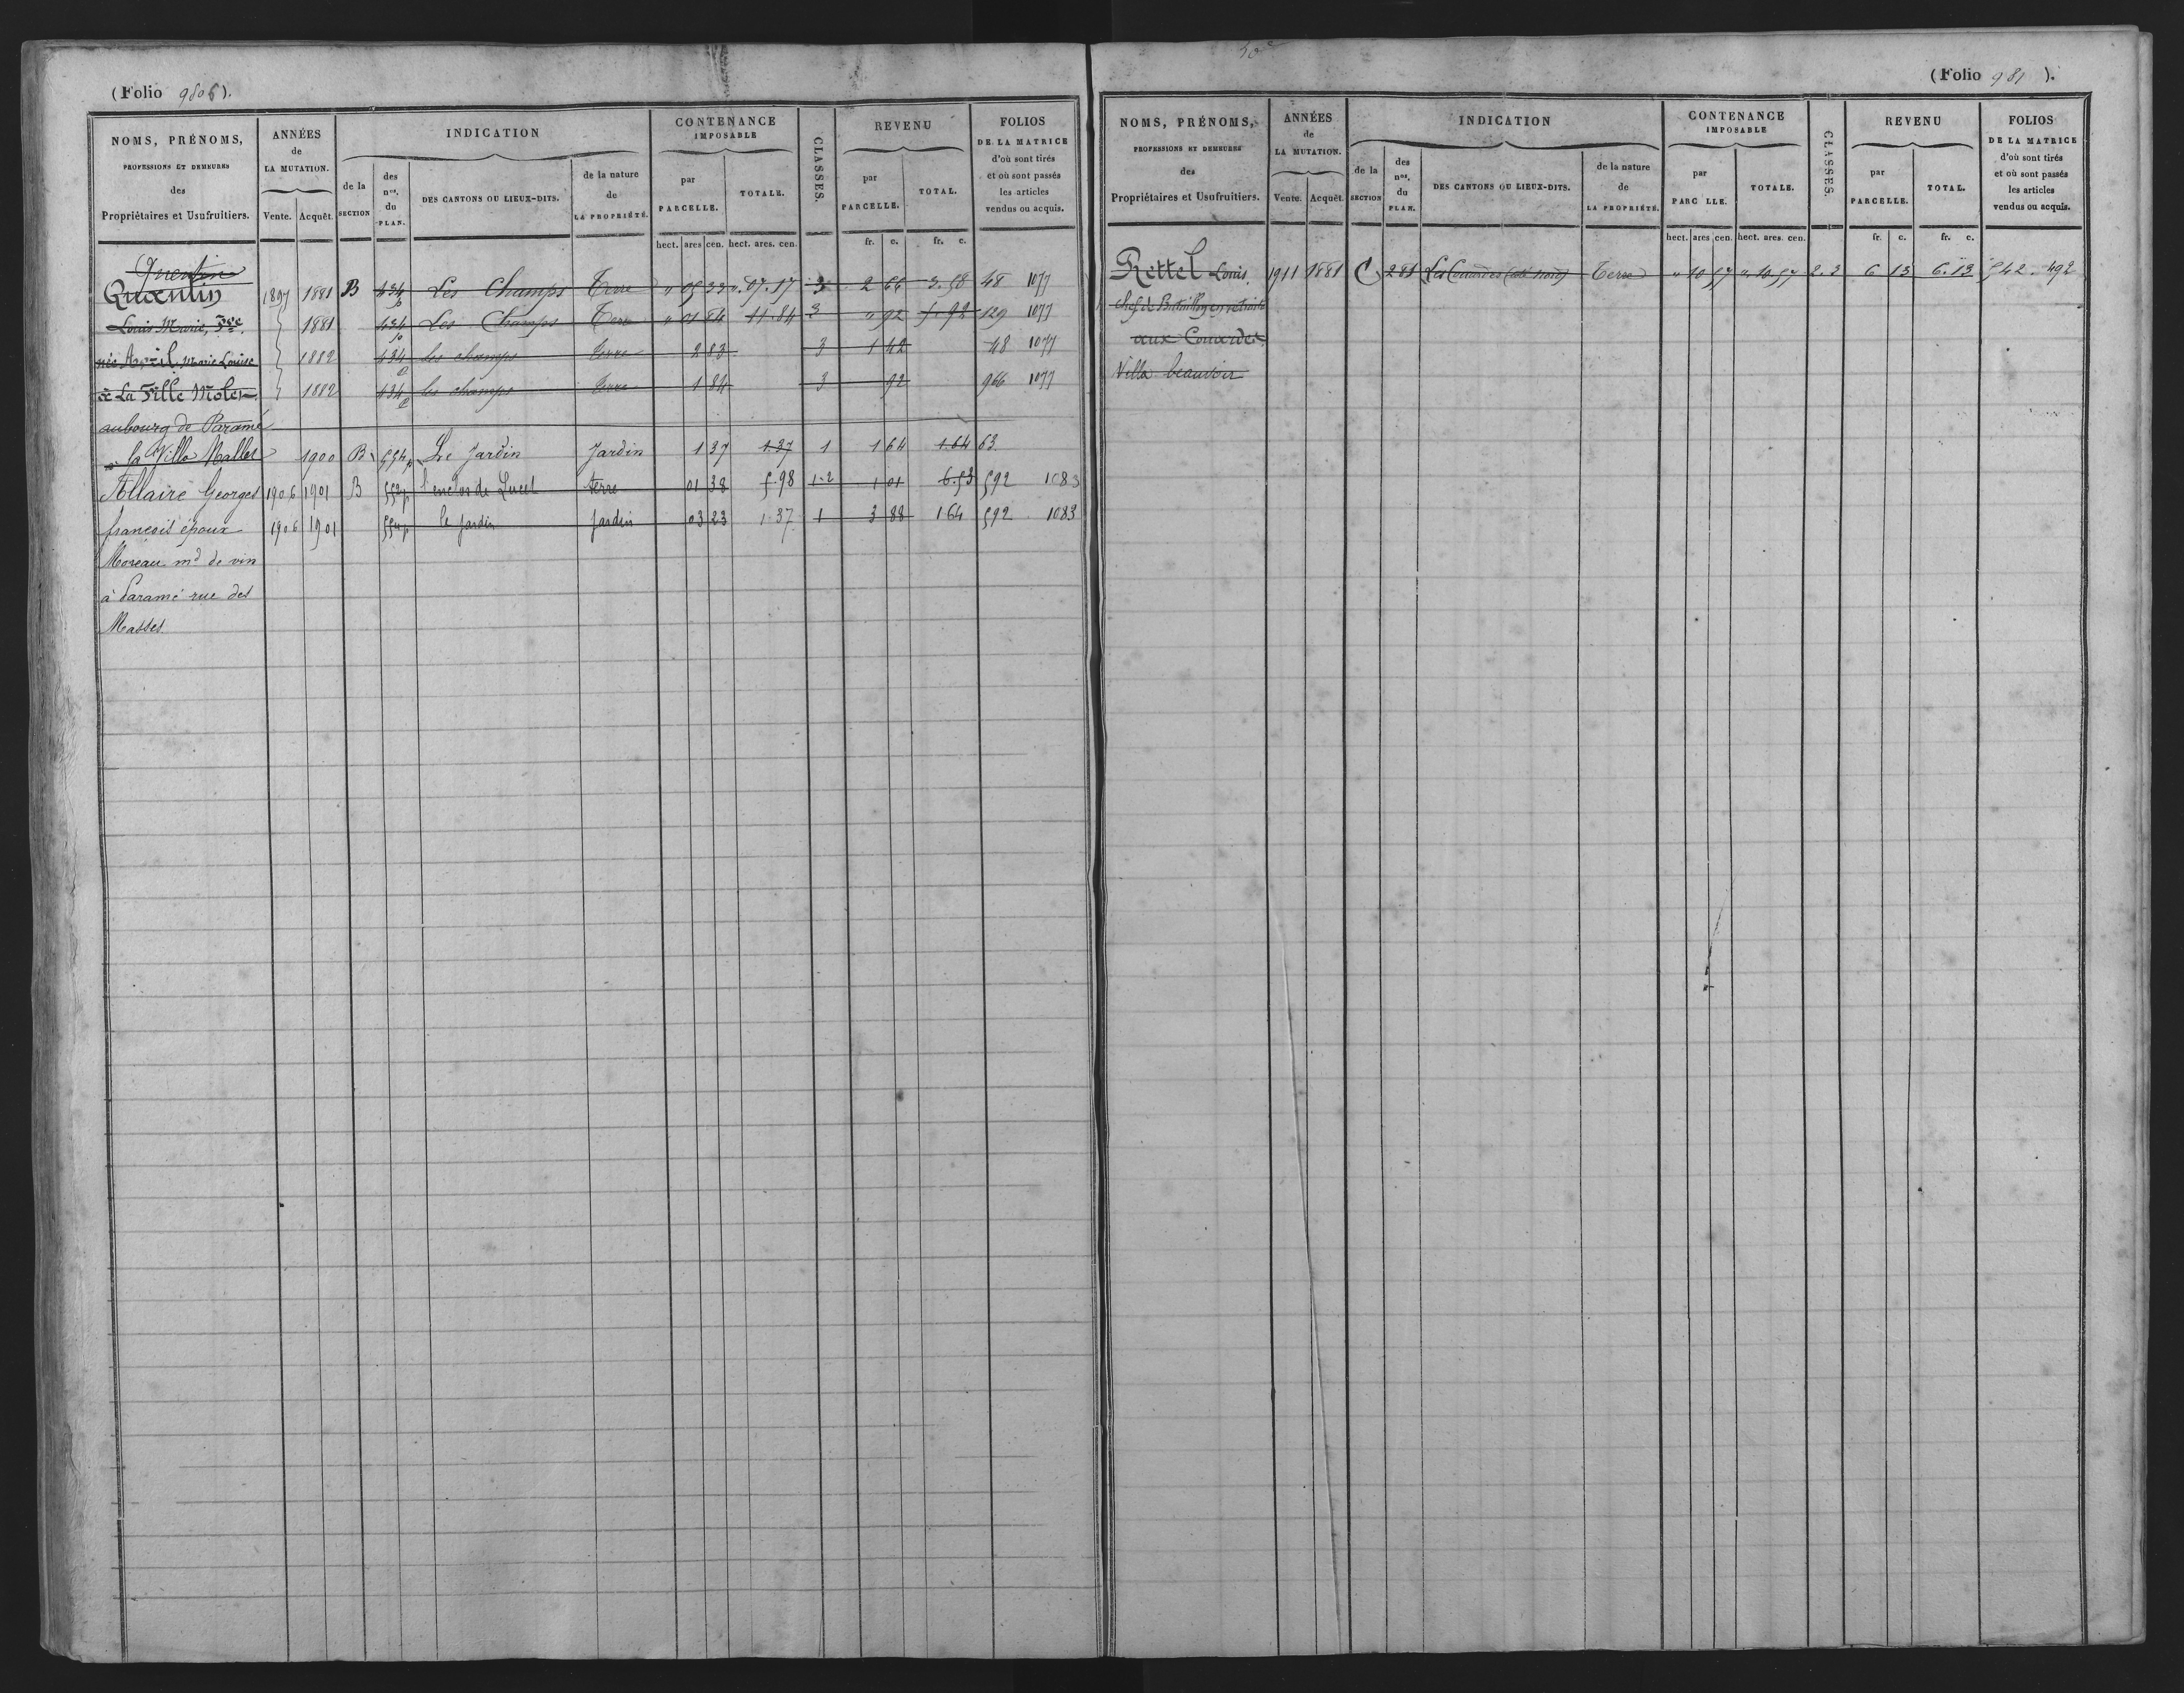 (Folio 980 6).
NOMS, PRÉNOMS,
PROFESSIONS ET DEMEURES
des
Propriétaires et Usufruitiers.
ANNÉES
de
LA MUTATION.
Vente. Acquêt.
INDICATION
de la
SECTION
des
nos.
du
PLAN.
DES CANTONS OU LIEUX-DITS.
de la nature
de
LA PROPRIÉTÉ.
CONTENANCE
IMPOSABLE
par
PARCELLE.
TOTALE.
hect. ares cen. hect. ares. cen.
CLASSES.
REVENU
par
PARCELLE.
TOTAL.
fr. c. fr. c.
FOLIOS
DE LA MATRICE
d'où sont tirés
et où sont passés
les articles
vendus ou acquis.
Quentin
Quentin 1897 1881 B 434 p Les Champs Terre " 05 33 ". 07. 17 3 2 66 3. 58 48 1077
Louis Marie, 1881 434 p Les Champs Terre " 01 84 11. 84 3 " 92 5. 92 129 1077
née Avril, Marie Louise 1882 434 p les champs terre 2 83 3 1 42 48 1077
à La Ville Moler 1882 434 p les champs terre 1 84 3 92 966 1077
au bourg de Paramé
la Villa Mallet 1900 B 554 p Le Jardin Jardin 1 37 1.37 1 1 64 1.64 63
Allaire Georges 1906 1901 B 552 p l'enclos de Lucet terre 01 38 5.98 1-2 1 01 6.53 592 1083
françois époux 1906 1901 554 p le jardin jardin 03 23 1.37 1 3 88 1 64 592 1083
Moreau md de vin
à Paramé rue des
Masses
(Folio 981 ).
NOMS, PRÉNOMS,
PROFESSIONS ET DEMEURES
des
Propriétaires et Usufruitiers.
ANNÉES
de
LA MUTATION.
Vente. Acquêt.
INDICATION
de la
SECTION
des
nos.
du
PLAN.
DES CANTONS OU LIEUX-DITS.
de la nature
de
LA PROPRIÉTÉ.
CONTENANCE
IMPOSABLE
par
PARC LLE.
TOTALE.
hect. ares cen. hect. ares. cen.
CLASSES.
REVENU
par
PARCELLE.
TOTAL.
fr. c. fr. c.
FOLIOS
DE LA MATRICE
d'où sont tirés
et où sont passés
les articles
vendus ou acquis.
Rettel Louis, 1911 1881 C 281 Les Couardes (côté nord) Terre " 10 57 ". 10. 57 2. 3 6 13 6. 13 542. 492
chef de Bataillon en retraite
aux Couardes
Villa beauvoir